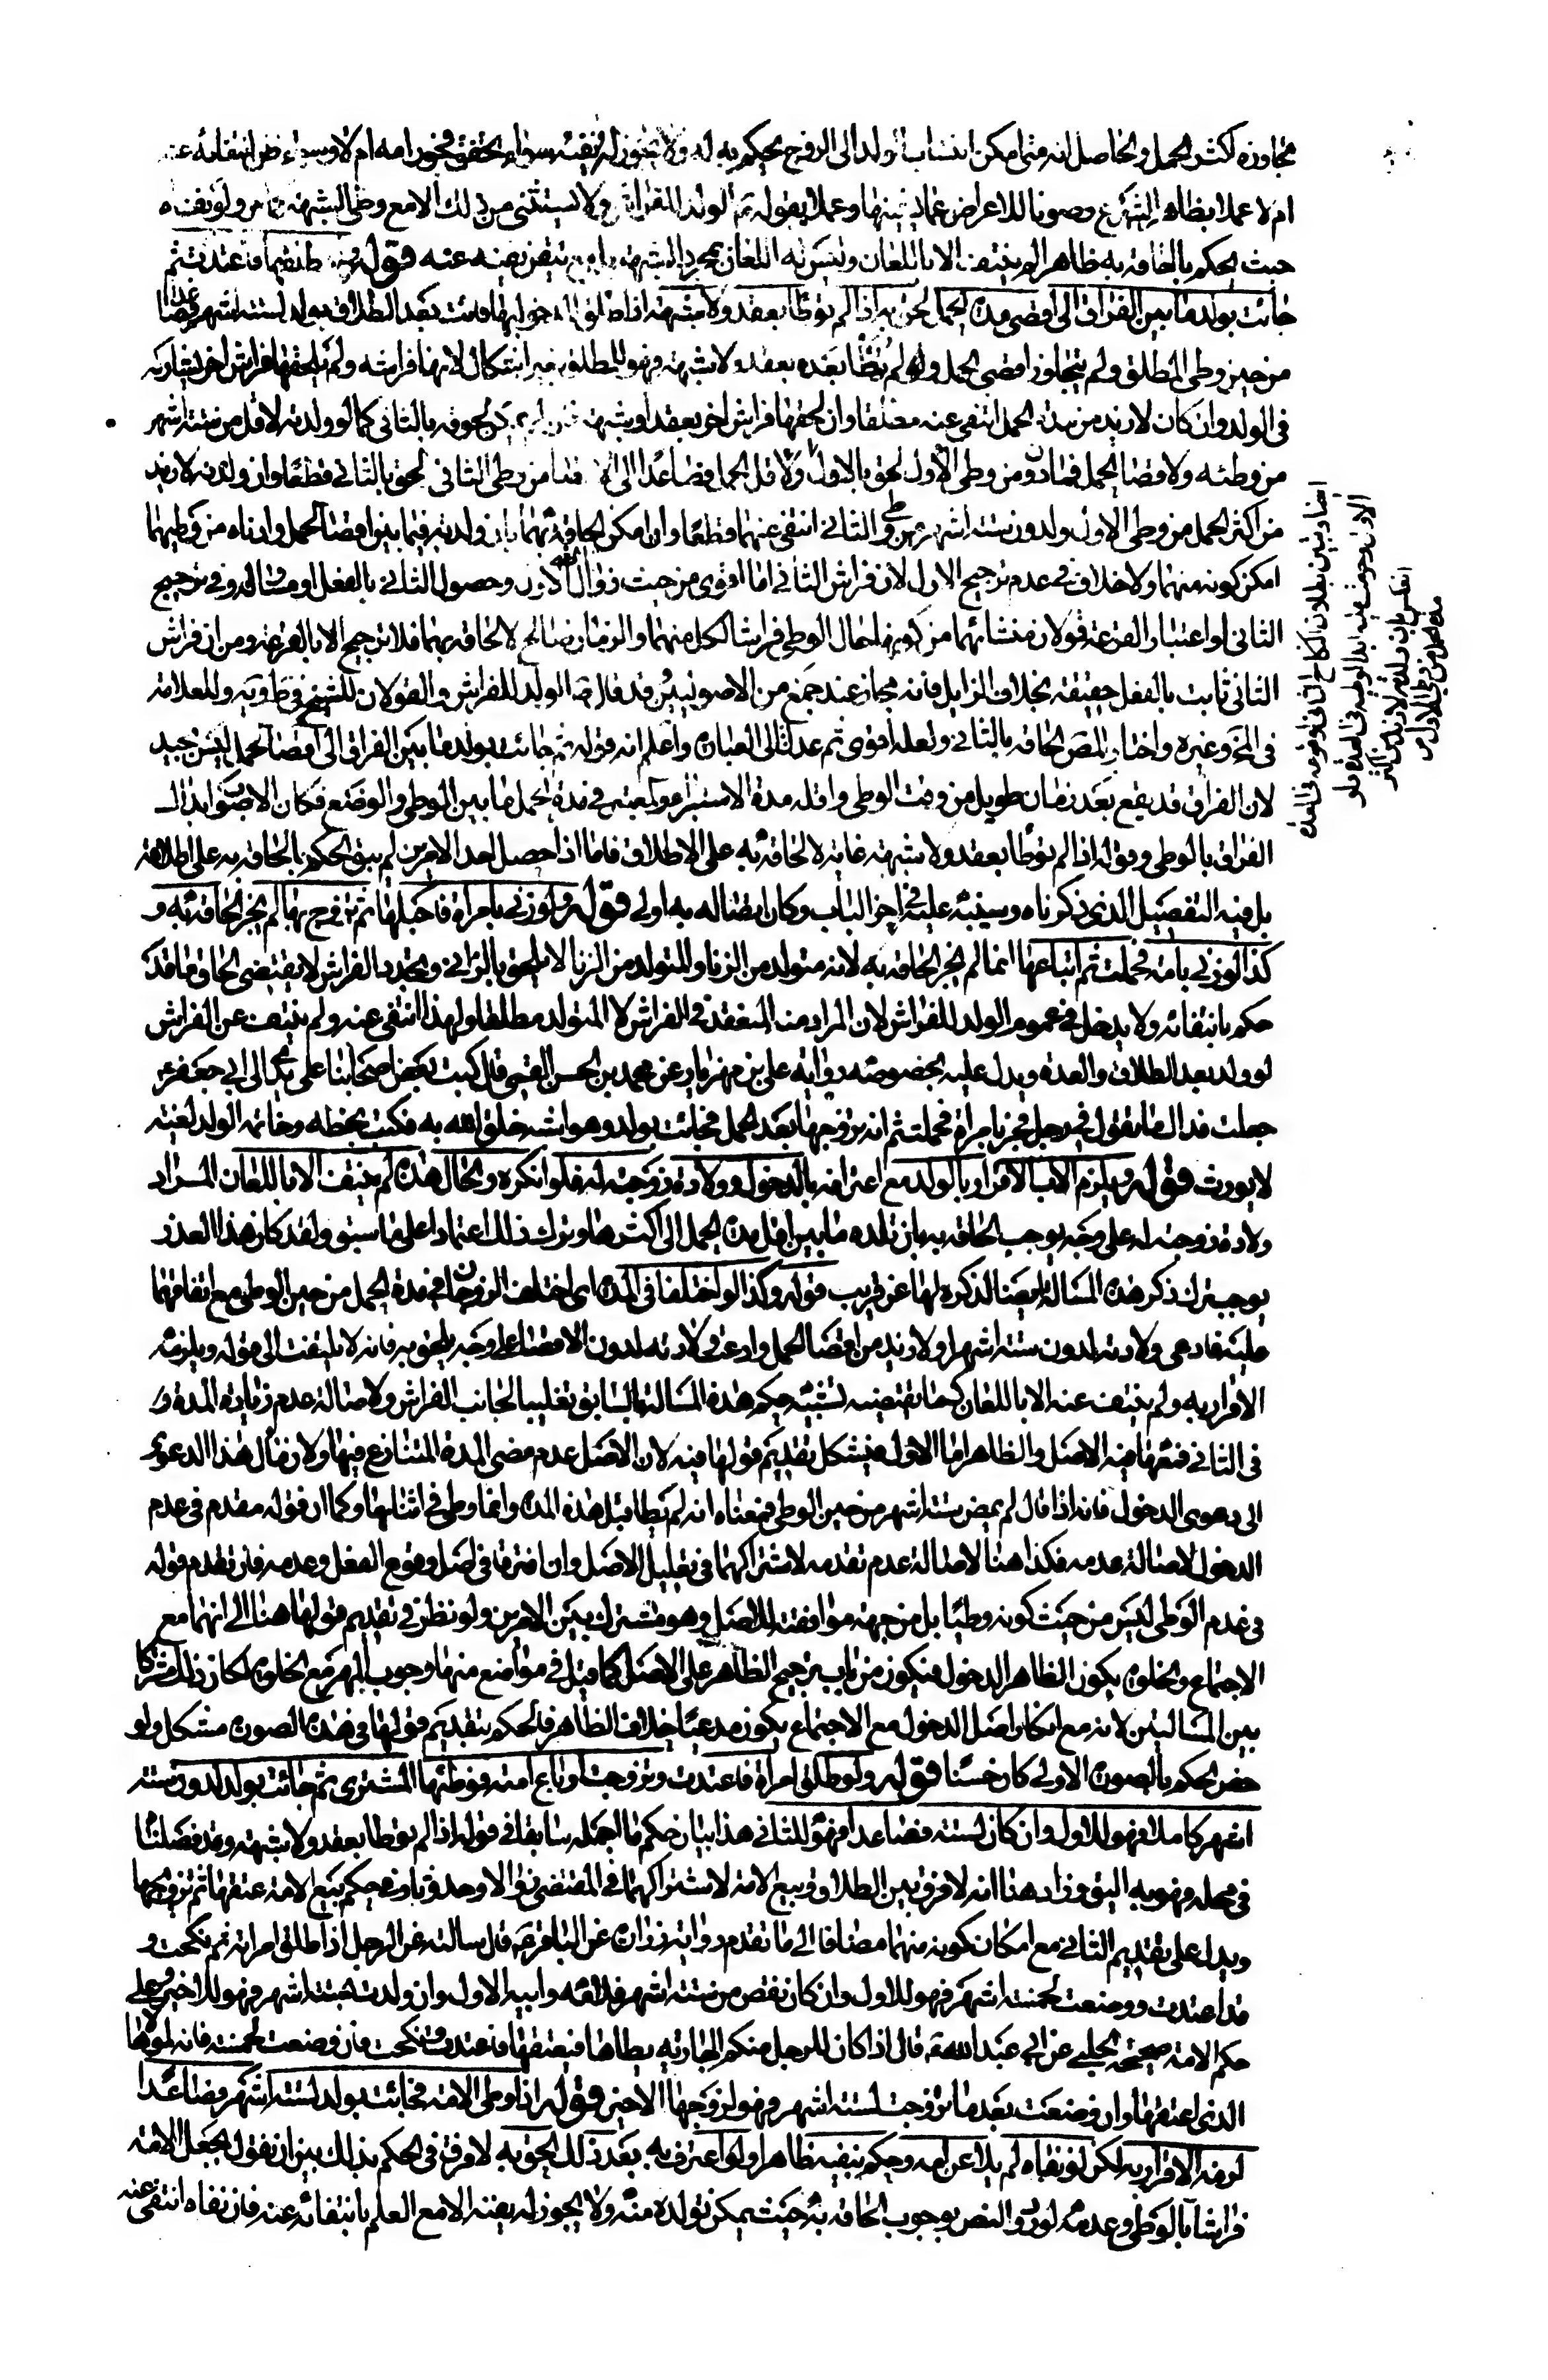 مجاوزه اكثر الحمل والحاصل انه متى امكن انتساب الولد الى الزوج يحكم به له ولا يجوز له نفيه سواء تحقق فجور امه ام لا وسواء ظن انتفائه عنه
ام لا عملا بظاهر الشرع وصونا للاعراض عما يشينها وعملا بقوله ص الولد للفراش ولا يستثنى من ذلك الا مع وطى الشبهة كما مر ولو نفاه
حيث يحكم بالحاقه به ظاهرا لم ينتف الا باللعان وليس له اللعان بمجرد الشبهة ما لم يتيقن نفيه عنه قوله ولو طلقها فاعتدت ثم
جائت بولد ما بين الفراق الى اقصى مدة الحمل لحق به اذا لم توطا بعقد ولا شبهة اذا طلق المدخول بها فاتت بعد الطلاق بولد لستة اشهر فصاعدا
من حين وطى المطلق ولم يتجاوز اقصى الحمل ولم توطا بعده بعقد ولا شبهة فهو للمطلق بغير اشكال لانها فراشه ولم يلحقها فراش اخر يشاركه
فى الولد وان كان لازيد من مدة الحمل انتفى عنه مطلقا وان لحقها فراش اخر بعقد او شبهة لحوقه بالثانى كما لو ولدته لاقل من ستة اشهر
من وطئه ولاقصى الحمل فما دون من وطى الاول لحق بالاول ولاقل الحمل فصاعدا الى من وطى الثانى لحق بالثانى قطعا وان ولدته لازيد
من اكثر الحمل من وطى الاول ولدون ستة اشهر من وطى الثانى انتفى عنهما قطعا وان امكن الحاقه بهما بان ولدته فيما بين اقصى الحمل وادناه من وطيهما
امكن كونه منهما ولا خلاف فى عدم ترجيح الاول لان فراش الثانى اما اقوى من حيث زوال الاول وحصول الثانى بالفعل او مثله وفى ترجيح
الثانى او اعتبار القرعة قولان منشائهما من كونها حال الوطى فراشا لكل منهما والزمان صالح لالحاقه بهما فلا ترجيح الا بالقرعة ومن ان فراش
الثانى ثابت بالفعل حقيقة بخلاف الزايل فانه مجاز عند جمع من الاصوليين وقد قال ص الولد للفراش والقولان للشيخ فى ط وية وللعلامة
فى الخ وغيره واختار المص الحاقه بالثانى ولعله اقوى ثم عد الى العبارة واعلم ان قوله ثم جائت بولد ما بين الفراق الى اقصى الحمل ليس بجيد
لان الفراق قد يقع بعد زمان طويل من وقت الوطى واقله مدة الاستبراء والمعتبر فى مدة الحمل ما بين الوطى والوضع فكان الاصوب ابدال
الفراق بالوطى وقوله اذا لم توطا بعقد ولا شبهة غاية لالحاقه به على الاطلاق فاما اذا حصل احد الامرين لم يبق الحكم بالحاقه به على اطلاقه
بل فيه التفصيل الذى ذكرناه وسينبه عليه فى اخر الباب وكان ايصاله به اولى قوله ولو زنى بامراة فاحبلها ثم تزوج بها لم يجز الحاقه به و
كذا لو زنى بامة فحملت ثم ابتاعها انما لم يجز الحاقه به لانه متولد من الزنا والمتولد من الزنا لا يلحق بالزانى وتجدد الفراش لا يقتضى الحاق ما قد
حكم بانتفائه ولا يدخل فى عموم الولد للفراش لان المراد منه المنعقد فى الفراش لا المتولد مطلقا ولهذا انتفى عنه ولم ينتف عن الفراش
لو ولد بعد الطلاق والعدة ويدل عليه بخصوصه رواية على بن مهزيار عن محمد بن الحسن القمى قال كتب بعض اصحابنا على يدى الى ابى جعفر ع
جعلت فداك ما تقول فى رجل فجر بامراة فحملت ثم انه تزوجها بعد الحمل فجائت بولد وهو اشبه خلق الله به فكتب بخطه وخاتمه الولد لغية
لا يورث قوله ويلزم الاب الاقرار بالولد مع اعترافه بالدخول وولادة زوجته له فلو انكره والحال هذه لم ينتف الا باللعان المراد
ولادة زوجته له على وجه يوجب الحاقه به بان تلده ما بين اقل مدة الحمل الى اكثرها وترك ذلك اعتمادا على ما سبق ولقد كان هذا العذر
يوجب ترك ذكر هذه المسالة ايضا لذكره لها عن قريب قوله وكذا لو اختلفا فى المدة اى اختلف الزوجان فى مدة الحمل من حين الوطى مع اتفاقهما
عليه فادعى ولادته لدون ستة اشهر او لازيد من اقصى الحمل وادعت ولادته لدون الاقصى على وجه يلحق به فانه لا يلتفت الى قوله ويلزمه
الاقرار به ولم ينتف عنه الا باللعان كما يقتضيه تشبيه حكم هذه المسالة بالسابق تغليبا لجانب الفراش ولاصالة عدم زيادة المدة و
فى الثانى فمعها فيه الاصل والظاهر اما الاول فيشكل تقديم قولها فيه لان الاصل عدم مضى المدة المتنازع فيها ولان مال هذا الدعوى
الى دعوى الدخول فانه اذا قال لم يمض ستة اشهر من حين الوطى فمعناه انه لم يطا قبل هذه المدة وانما وطى فى اثنائها وكما ان قوله مقدم فى عدم
الدخول لاصالة عدمه فكذا هنا لاصالة عدم تقدمه لاشتراكهما فى تعليل الاصل وان افترقا فى اصل وقوع الفعل وعدمه فان تقدم قوله
فى عدم الوطى ليس من حيث كونه وطيا بل من جهة موافقته للاصل وهو مشترك بين الامرين ولو نظر فى تقديم قولها هنا الى انهما مع
الاجتماع والخلوة يكون الظاهر الدخول فيكون من باب ترجيح الظاهر على الاصل كما قيل فى مواضع منها وجوب المهر مع الخلوة لكان ذلك مشتركا
بين المسالتين لانه مع انكار اصل الدخول مع الاجتماع يكون مدعيا خلاف الظاهر فالحكم بتقديم قولها فى هذه الصورة مشكل ولو
خص الحكم بالصورة الاولى كان حسنا قوله ولو طلق امراة فاعتدت وتزوجت او باع امته فوطئها المشترى ثم جائت بولد لدون ستة
اشهر كاملا فهو للاول وان كان لستة فصاعدا فهو للثانى هذا بيان حكم ما اجمله سابقا فى قوله اذا لم توطا بعقد ولا شبهة وقد فصلنا
فى محله وهو به اليق وزاد هنا انه لا فرق بين الطلاق وبيع الامة لاشتراكهما فى المقتضى زوال الاول وفى حكم بيع الامة عتقها ثم تزويجها
ويدل على تقديم الثانى مع امكان كونه منهما مضافا الى ما تقدم رواية زرارة عن الباقر ع قال سالته عن الرجل اذا طلق امراته ثم نكحت و
قد اعتدت ووضعت لخمسة اشهر فهو للاول وان كان نقص من ستة اشهر فلامه وابيه الاول وان ولدت لستة اشهر فهو للاخير وعلى
حكم الامة صحيحة الحلبى عن ابى عبد الله ع قال اذا كان للرجل منكم الجارية يطاها فيعتقها فاعتدت ونكحت فان وضعت لخمسة فانه لمولاها
الذى اعتقها وان وضعت بعد ما تزوجت لستة اشهر فهو لزوجها الاخير قوله اذا وطى الامة فجائت بولد لستة اشهر فصاعدا
لزمه الاقرار به لكن لو نفاه لم يلاعن امه وحكم بنفيه ظاهرا ولو اعترف به بعد ذلك الحق به لا فرق فى الحكم بذلك بين ان نقول بجعل الامة
فراشا بالوطى وعدمه لورود النص بوجوب الحاقه به حيث يمكن تولده منه ولا يجوز له نفيه الا مع العلم بانتفائه عنه فان نفاه انتفى عنه